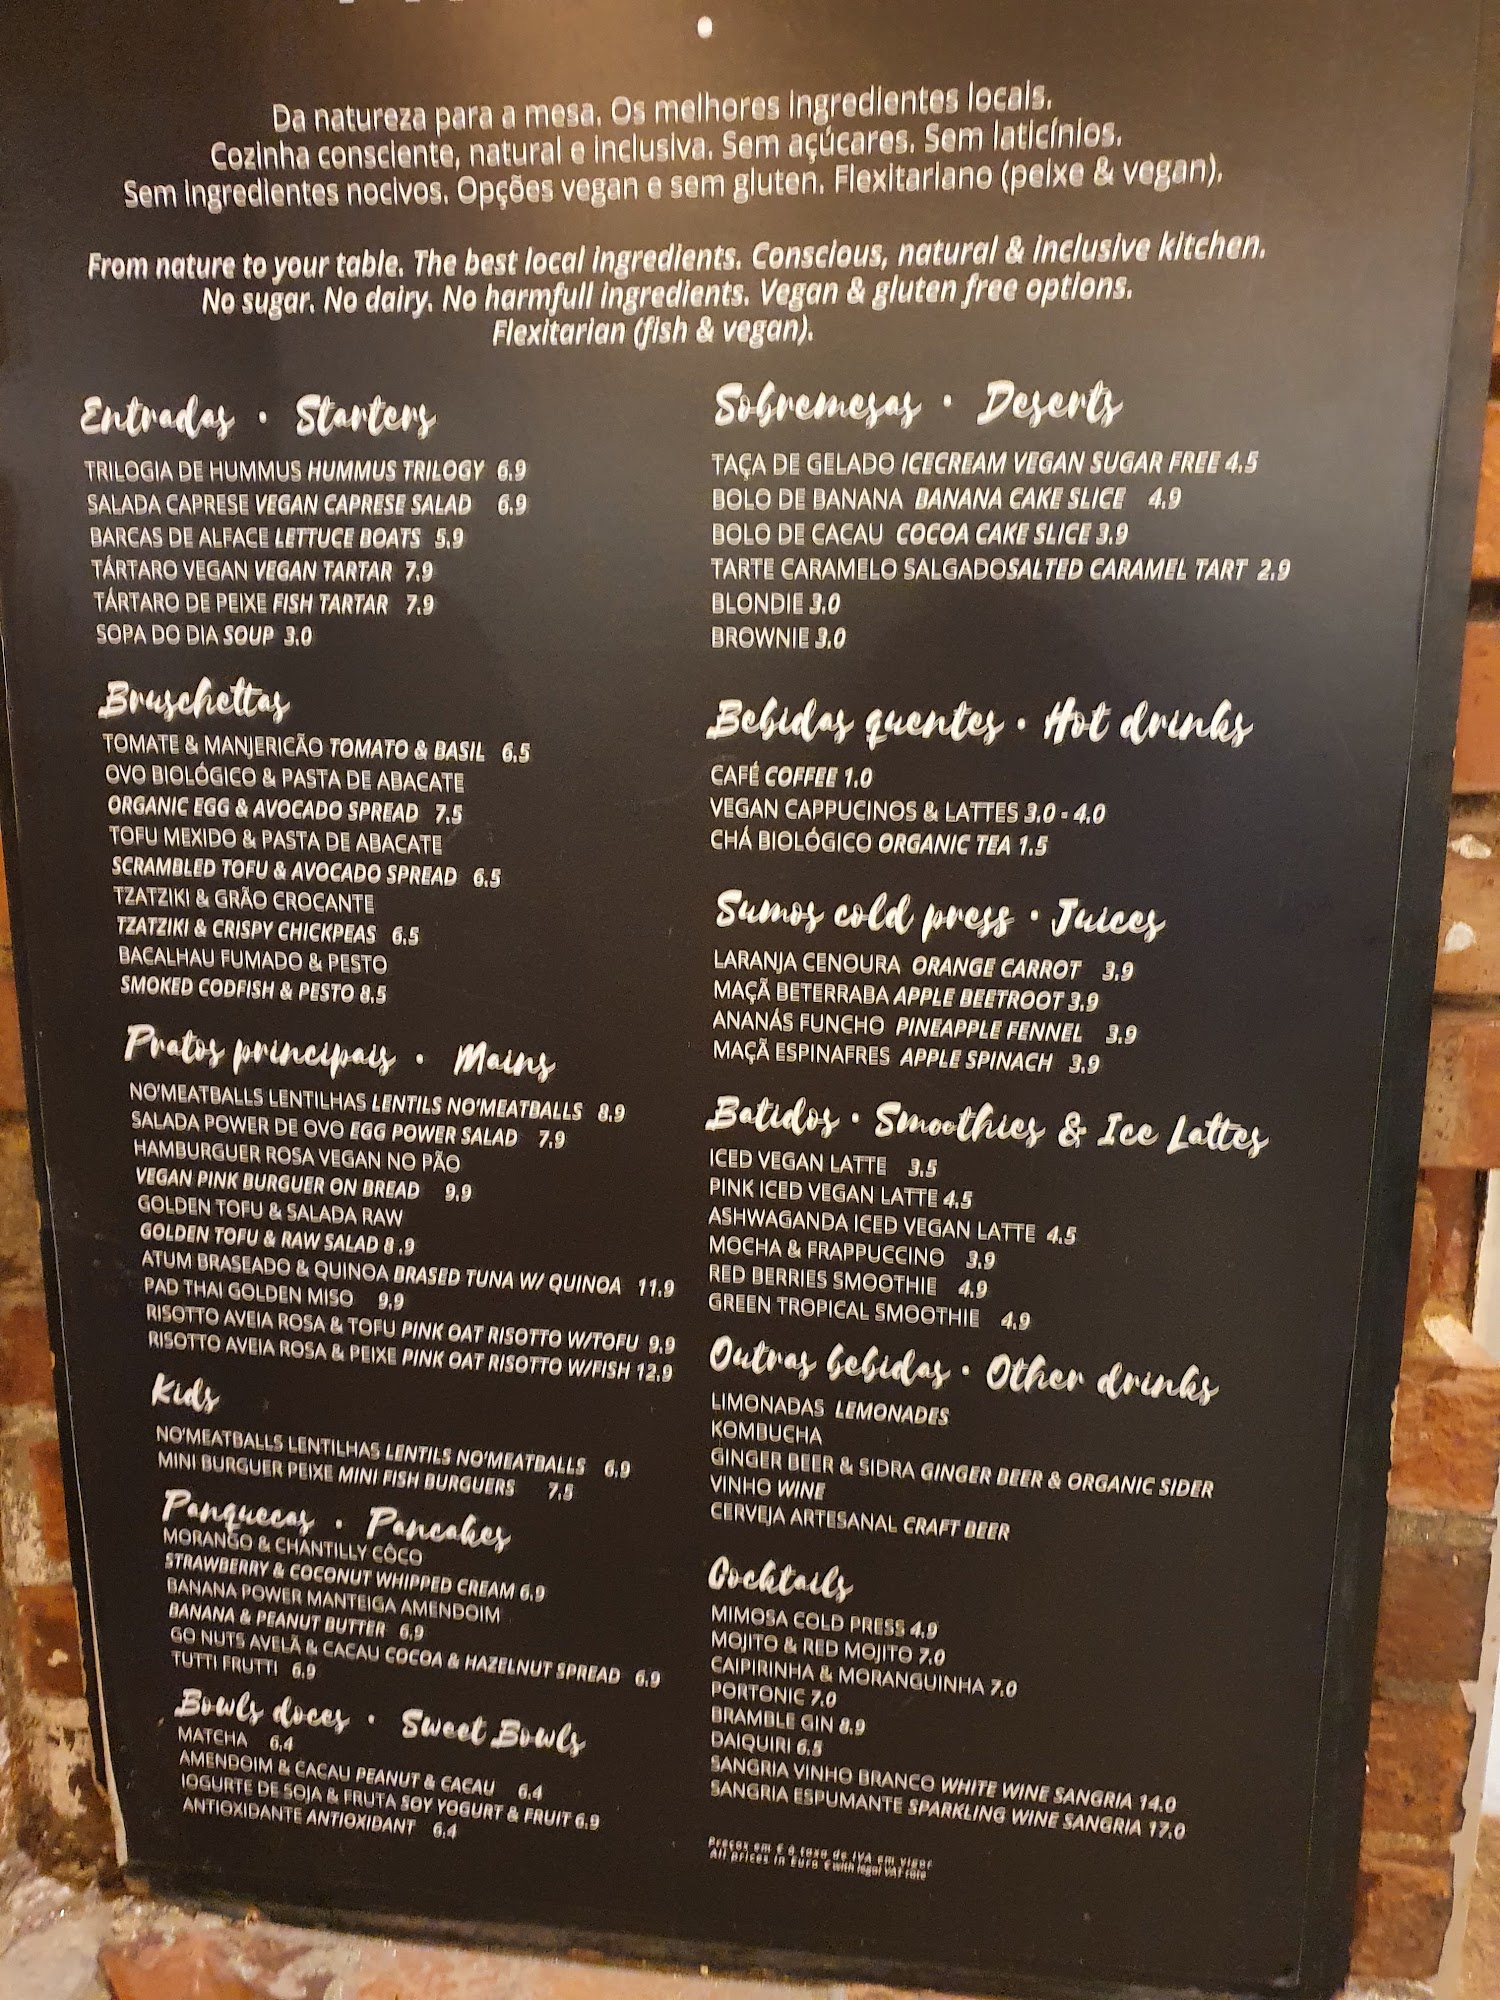 Da natureza para a mesa. Os melhores ingredientes locais.
Cozinha consciente, natural e inclusiva. Sem açúcares. Sem laticínios.
Sem ingredientes nocivos. Opções vegan e sem gluten. Flexitariano (peixe & vegan).
From nature to your table. The best local ingredients. Conscious, natural & inclusive kitchen.
No sugar. No dairy. No harmfull ingredients. Vegan & gluten free options.
Flexitarian (fish & vegan).
Entradas • Starters
TRILOGIA DE HUMMUS HUMMUS TRILOGY 6.9
SALADA CAPRESE VEGAN CAPRESE SALAD 6.9
BARCAS DE ALFACE LETTUCE BOATS 5.9
TÁRTARO VEGAN VEGAN TARTAR 7.9
TÁRTARO DE PEIXE FISH TARTAR 7.9
SOPA DO DIA SOUP 3.0
Bruschettas
TOMATE & MANJERICÃO TOMATO & BASIL 6.5
OVO BIOLÓGICO & PASTA DE ABACATE
ORGANIC EGG & AVOCADO SPREAD 7.5
TOFU MEXIDO & PASTA DE ABACATE
SCRAMBLED TOFU & AVOCADO SPREAD 6.5
TZATZIKI & GRÃO CROCANTE
TZATZIKI & CRISPY CHICKPEAS 6.5
BACALHAU FUMADO & PESTO
SMOKED CODFISH & PESTO 8.5
Pratos principais • Mains
NO'MEATBALLS LENTILHAS LENTILS NO'MEATBALLS 8.9
SALADA POWER DE OVO EGG POWER SALAD 7.9
HAMBURGUER ROSA VEGAN NO PÃO
VEGAN PINK BURGUER ON BREAD 9.9
GOLDEN TOFU & SALADA RAW
GOLDEN TOFU & RAW SALAD 8 .9
ATUM BRASEADO & QUINOA BRASED TUNA W/ QUINOA 11.9
PAD THAI GOLDEN MISO 9.9
RISOTTO AVEIA ROSA & TOFU PINK OAT RISOTTO W/TOFU 9.9
RISOTTO AVEIA ROSA & PEIXE PINK OAT RISOTTO W/FISH 12.9
Kids
NO'MEATBALLS LENTILHAS LENTILS NO'MEATBALLS 6.9
MINI BURGUER PEIXE MINI FISH BURGUERS 7.5
Panquecas • Pancakes
MORANGO & CHANTILLY CÔCO
STRAWBERRY & COCONUT WHIPPED CREAM 6.9
BANANA POWER MANTEIGA AMENDOIM
BANANA & PEANUT BUTTER 6.9
GO NUTS AVELÃ & CACAU COCOA & HAZELNUT SPREAD 6.9
TUTTI FRUTTI 6.9
Bowls doces • Sweet Bowls
MATCHA 6.4
AMENDOIM & CACAU PEANUT & CACAU 6.4
IOGURTE DE SOJA & FRUTA SOY YOGURT & FRUIT 6.9
ANTIOXIDANTE ANTIOXIDANT 6.4
Sobremesas • Deserts
TAÇA DE GELADO ICECREAM VEGAN SUGAR FREE 4.5
BOLO DE BANANA BANANA CAKE SLICE 4.9
BOLO DE CACAU COCOA CAKE SLICE 3.9
TARTE CARAMELO SALGADOSALTED CARAMEL TART 2.9
BLONDIE 3.0
BROWNIE 3.0
Bebidas quentes • Hot drinks
CAFÉ COFFEE 1.0
VEGAN CAPPUCINOS & LATTES 3.0 - 4.0
CHÁ BIOLÓGICO ORGANIC TEA 1.5
Sumos cold press • Juices
LARANJA CENOURA ORANGE CARROT 3.9
MAÇÃ BETERRABA APPLE BEETROOT 3.9
ANANÁS FUNCHO PINEAPPLE FENNEL 3.9
MAÇÃ ESPINAFRES APPLE SPINACH 3.9
Batidos • Smoothies & Ice Lattes
ICED VEGAN LATTE 3.5
PINK ICED VEGAN LATTE 4.5
ASHWAGANDA ICED VEGAN LATTE 4.5
MOCHA & FRAPPUCCINO 3.9
RED BERRIES SMOOTHIE 4.9
GREEN TROPICAL SMOOTHIE 4.9
Outras bebidas • Other drinks
LIMONADAS LEMONADES
KOMBUCHA
GINGER BEER & SIDRA GINGER BEER & ORGANIC SIDER
VINHO WINE
CERVEJA ARTESANAL CRAFT BEER
Cocktails
MIMOSA COLD PRESS 4.9
MOJITO & RED MOJITO 7.0
CAIPIRINHA & MORANGUINHA 7.0
PORTONIC 7.0
BRAMBLE GIN 8.9
DAIQUIRI 6.5
SANGRIA VINHO BRANCO WHITE WINE SANGRIA 14.0
SANGRIA ESPUMANTE SPARKLING WINE SANGRIA 17.0
Preços em € à taxa de IVA em vigor
All prices in Euro € with legal VAT rate